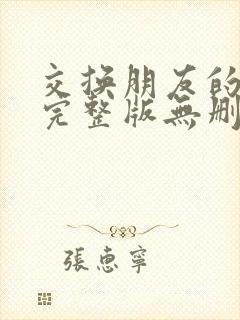 交換朋友的
完整版無刪
張惠寧